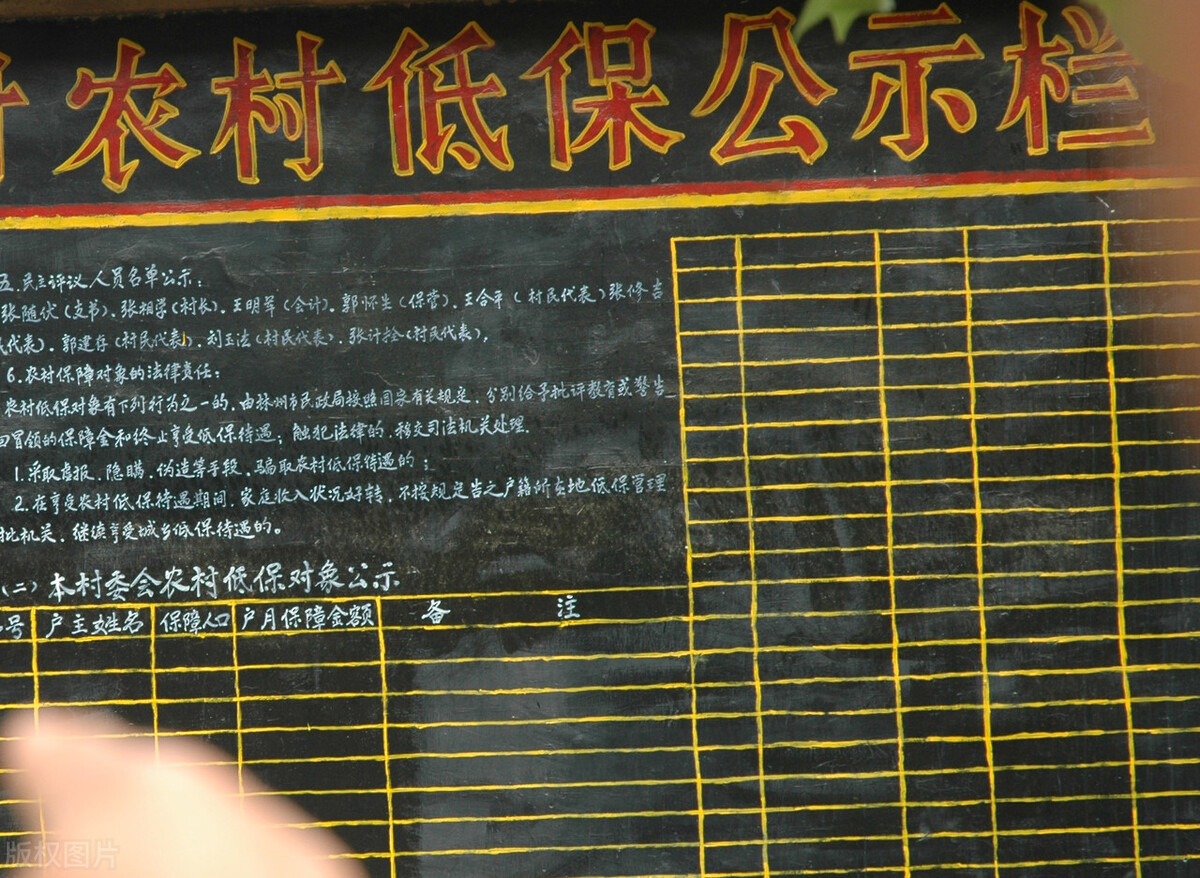 农村低保公示栏
五.民主评议人员名单公示:
张随伏(支书).张相学(村长).王明军(会计).郭怀生(保管).王合平(村民代表)张修吉
代表).郭建存(村民代表).刘玉法(村民代表).张计拴(村民代表),
6.农村保障对象的法律责任:
农村低保对象有下列行为之一的,由林州市民政局按照国家有关规定,分别给予批评教育或警告
回冒领的保障金和终止享受低保待遇;触犯法律的,移交司法机关处理.
1.采取虚报、隐瞒、伪造等手段、骗取农村低保待遇的;
2.在享受农村低保待遇期间,家庭收入状况好转、不按规定告之户籍所在地低保管理
批机关、继续享受城乡低保待遇的。
(二)本村委会农村低保对象公示
号 户主姓名 保障人口 户月保障金额 备 注
版权图片